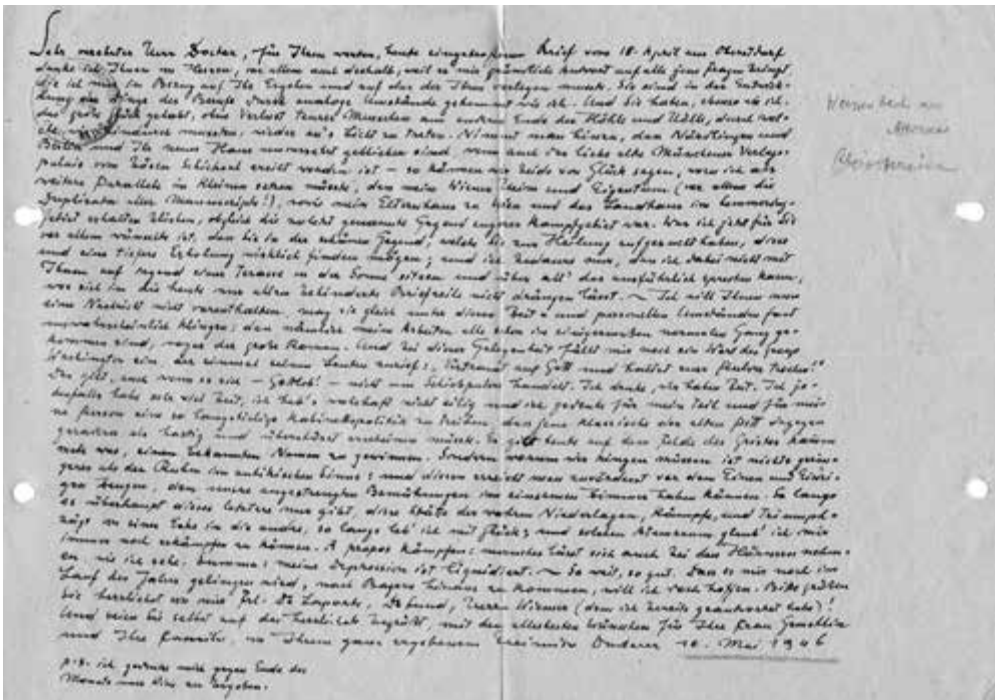 Sehr verehrter Herr Doctor, für Ihren werten, heute eingetroffenen Brief vom 18. April aus Oberstdorf
danke ich Ihnen von Herzen, vor allem auch deshalb, weil er mir gründliche Antwort auf alle jene Fragen bringt,
die ich mir in Bezug auf Ihr Ergehen und auf das der Ihren vorlegen musste. Sie sind in der Entwick-
lung der Dinge des Berufs durch analoge Umstände gehemmt wie ich. Und Sie haben, ebenso wie ich,
das große Glück gehabt, ohne Verlust teurer Menschen am anderen Ende der Höhle und Hölle, durch wel-
che wir hindurch mussten, wieder an's Licht zu treten. Nimmt man hinzu, dass Nördlingen und
Berlin und Ihr neues Haus unversehrt geblieben sind, wenn auch das liebe alte Münchener Verlags-
palais vom bösen Schicksal ereilt worden ist – so können wir beide von Glück sagen, wozu ich als
weitere Parallele im Kleinen setzen müsste, dass mein Wiener Heim und Eigentum (vor allem die
Duplikate aller Manuscripte!), sowie mein Elternhaus zu Wien und das Landhaus im Semmering-
gebiet erhalten blieben, obgleich die zuletzt genannte Gegend engeres Kampfgebiet war. Was ich jetzt für Sie
vor allem wünschte ist, dass Sie in der schönen Gegend, welche Sie zur Heilung aufgesucht haben, diese
und eine tiefere Erholung wirklich finden mögen; und ich bedaure nur, dass ich dabei nicht mit
Ihnen auf irgend einer Terasse in der Sonne sitzen und über all' das ausführlich sprechen kann,
was sich in die heute nur allzu behinderte Briefzeile nicht drängen lässt. – Ich will Ihnen nun
eine Nachricht nicht vorenthalten, mag sie gleich unter diesen Zeit- und personellen Umständen fast
unwahrscheinlich klingen: dass nämlich meine Arbeiten alle schon in einigermaßen normalen Gang ge-
kommen sind, sogar der große Roman. Und bei dieser Gelegenheit fällt mir noch ein Wort des George
Washington ein, der einmal seinen Leuten zurief: „Vertraut auf Gott und haltet euer Pulver trocken!"
Das gilt, auch wenn es sich – Gottlob! – nicht um Schießpulver handelt. Ich denke, wir haben Zeit. Ich je-
denfalls habe sehr viel Zeit, ich hab's wahrhaft nicht eilig und ich gedenke für mein Teil und für mei-
ne Person eine so langstielige Kabinettspolitik zu treiben, dass jene klassische des alten Pitt dagegen
geradezu als hastig und überstürzt erscheinen müsste. Es gilt heute auf dem Felde des Geistes kaum
mehr was, einen bekannten Namen zu gewinnen. Sondern worum wir ringen müssen ist nichts gerin-
geres als der Ruhm im antikischen Sinne: und diesen erreicht man zuvörderst vor dem Einen und Einzi-
gen Zeugen, den unsere angestrengten Bemühungen im einsamen Zimmer haben können. So lange
es überhaupt dieses letztere nur gibt, diese Stätte der wahren Niederlagen, Kämpfe, und Triumph-
züge von einer Ecke in die andre, so lange leb' ich mit Glück; und solchen Atemraum glaub' ich mir
immer noch erkämpfen zu können. À propos kämpfen: manches lässt sich auch bei den Hörnern nehm-
en, wie ich sehe. Summa: meine Depression ist liquidiert. – So weit, so gut. Dass es mir noch im
Lauf des Jahres gelingen wird, nach Bayern hinaus zu kommen, will ich doch hoffen. Bitte grüßen
Sie herzlichst von mir Frl. De Laporte, Herrn Wiemer (dem ich bereits geantwortet habe)!
Und seien Sie selbst auf das herzlichste begrüßt, mit den allerbesten Wünschen für Ihre Frau Gemahlin
und Ihre Familie, von Ihrem ganz ergebenen Heimito Doderer 10. Mai 1946
P.S. ich gedenke mich gegen Ende des
Monats nach Wien zu begeben.
Weissenbach am
Attersee